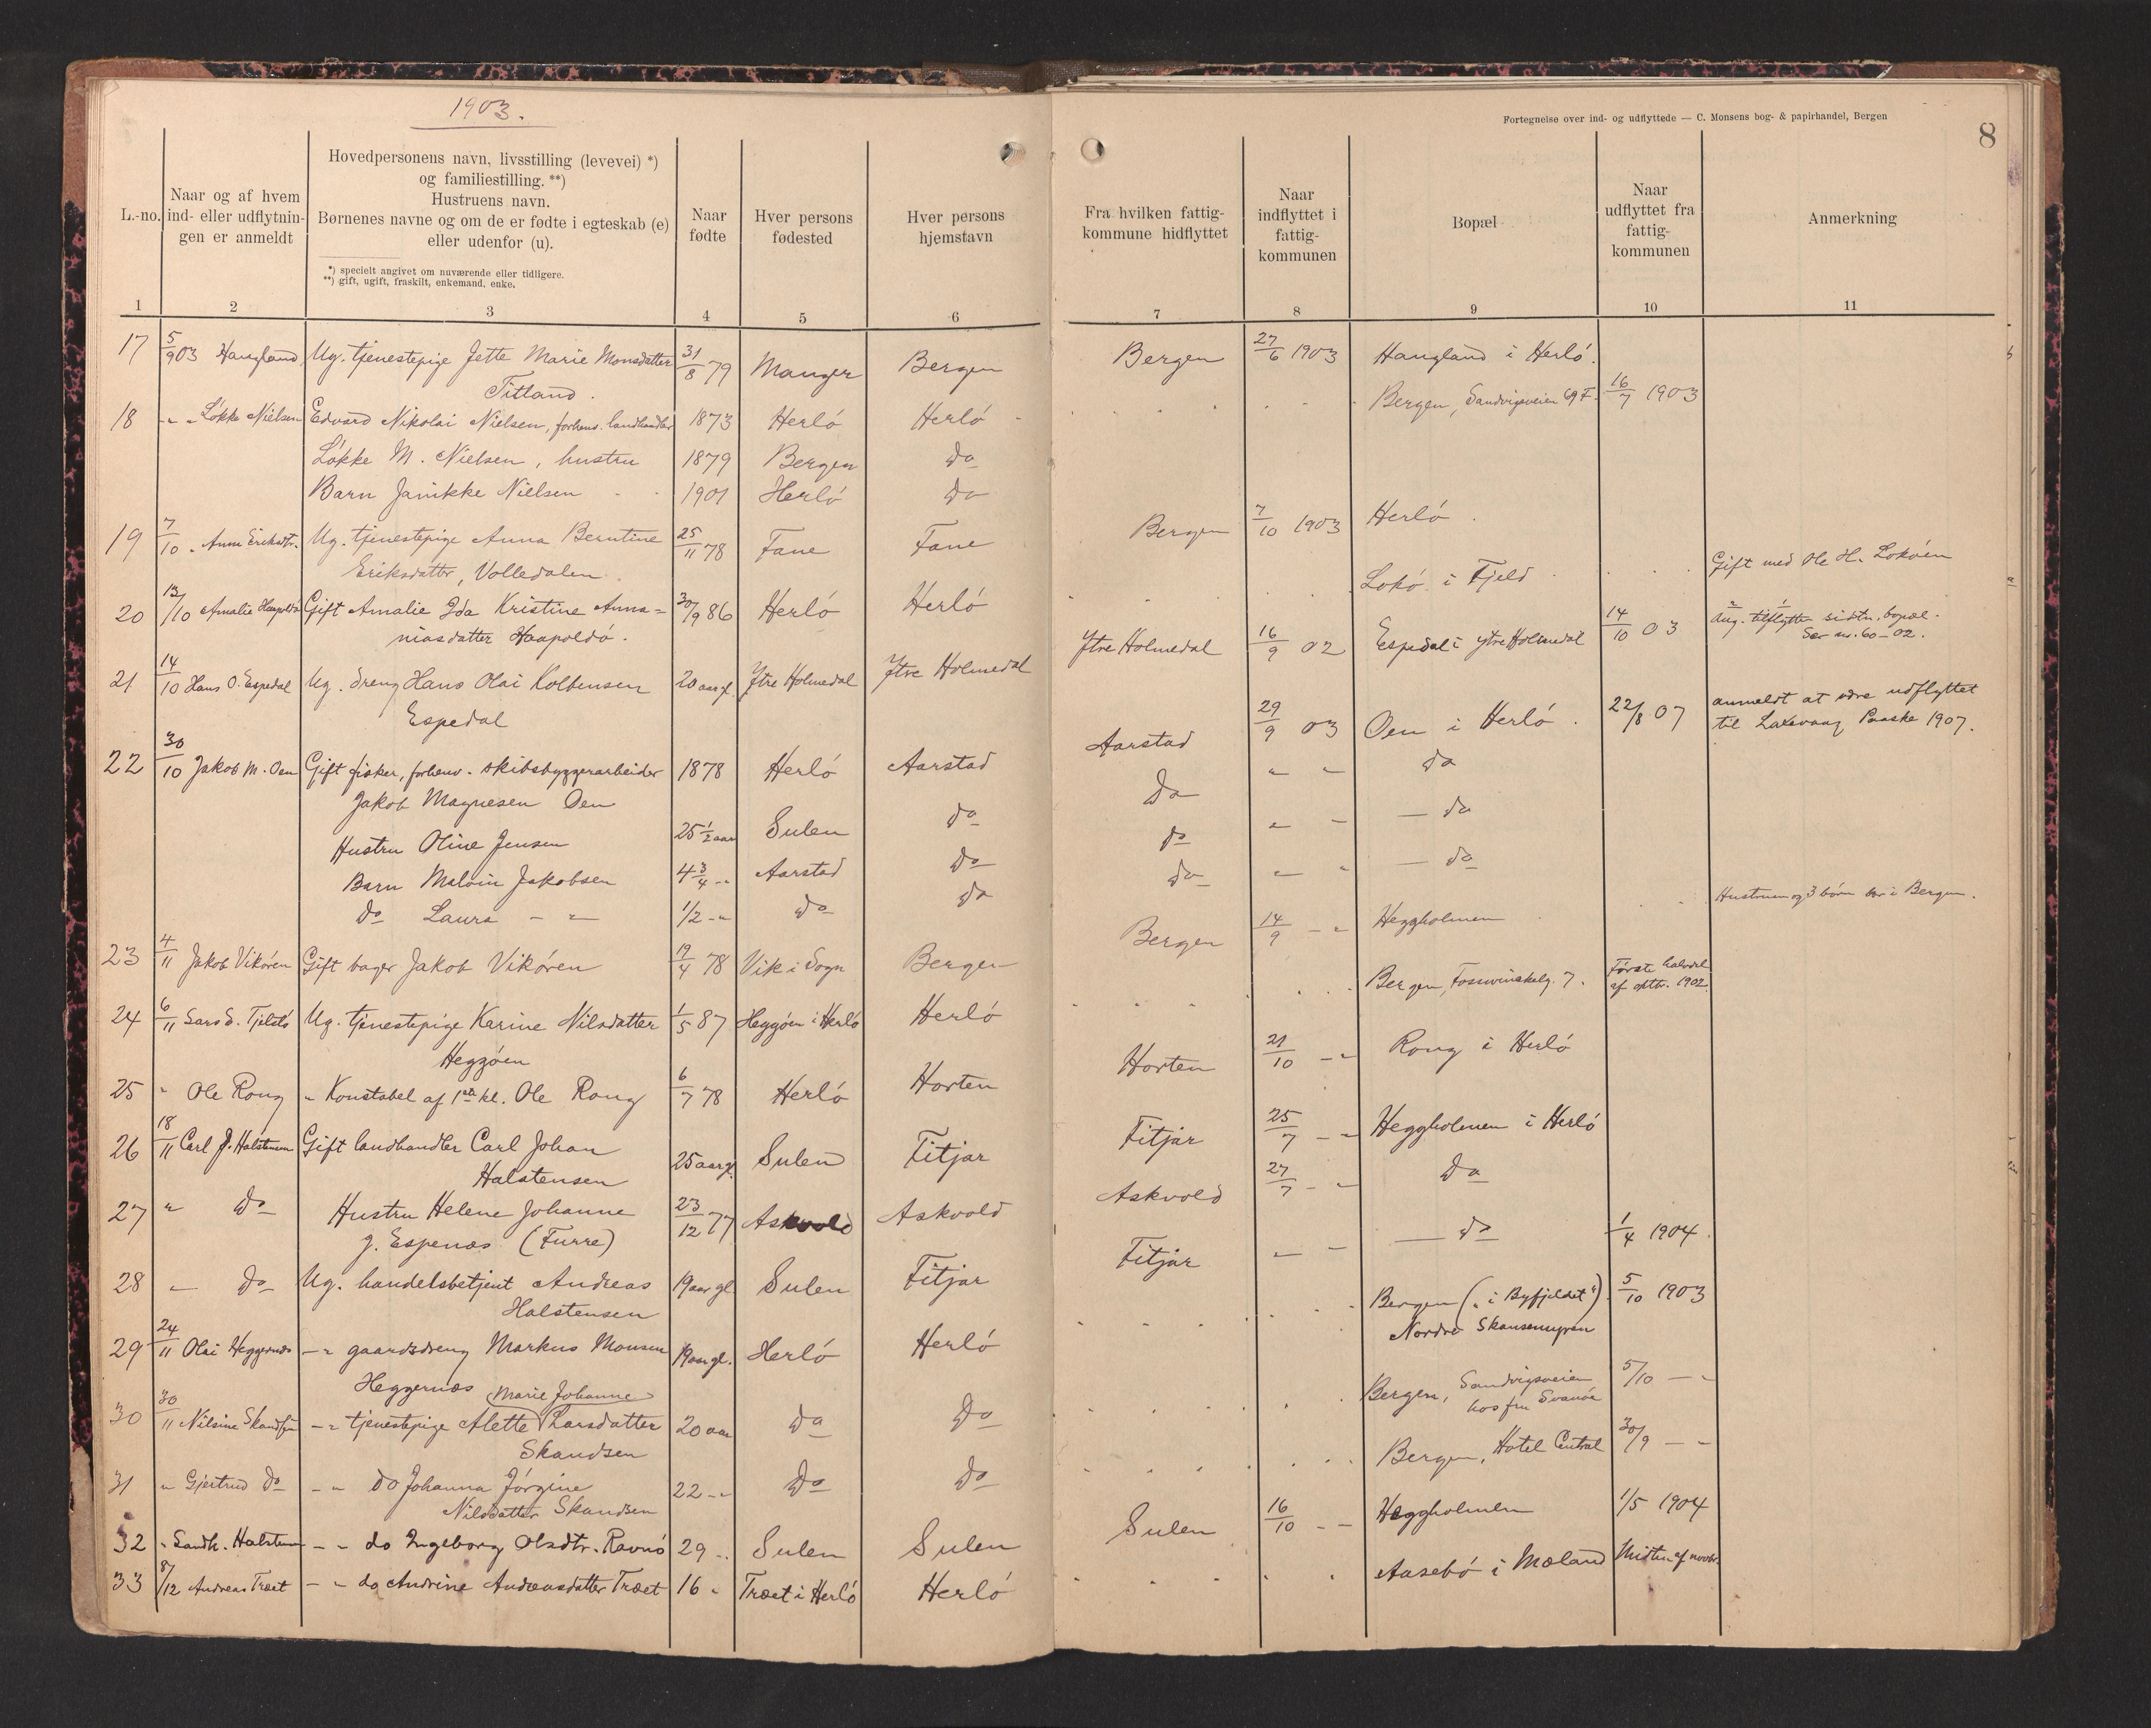 1903.
Fortegnelse over ind- og udflyttede — C. Monsens bog- & papirhandel, Bergen
8
L.-no.
Naar og af hvem
ind- eller udflytnin-
gen er anmeldt
Hovedpersonens navn, livsstilling (levevei) *)
og familiestilling. **)
Hustruens navn.
Børnenes navne og om de er fødte i egteskab (e)
eller udenfor (u).
*) specielt angivet om nuværende eller tidligere.
**) gift, ugift, fraskilt, enkemand, enke.
Naar
fødte
Hver persons
fødested
Hver persons
hjemstavn
Fra hvilken fattig-
kommune hidflyttet
Naar
indflyttet i
fattig-
kommunen
Bopæl
Naar
udflyttet fra
fattig-
kommunen
Anmerkning
1 2 3 4 5 6 7 8 9 10 11
17 5/9 03 Haugland Ug. tjenestepige Jette Marie Monsdatter 31/8 79 Manger Bergen Bergen 27/6 1903 Haugland i Herlö.
Titland.
18 " " Løkke Nielsen Edvard Nikolai Nielsen, forhenv. landhandler 1873 Herló Herló Bergen, Sandvigsveien 69 F. 16/7 1903
Løkke M. Nielsen, hustru 1879 Bergen Do
Barn Janikke Nielsen 1901 Herló Do
19 7/10 " Anna Eriksdtr. Ug. tjenestepige Anna Berntine 25/11 78 Fane Fane Bergen 7/10 1903 Herló.
Eriksdatter, Volledalen.
20 13/10 Amalie Haapoldö Gift Amalie Ida Kristine Anna- 30/9 86 Herló Herló Lokó i Fjeld Gift med Ole H. Lokóen
niasdatter Haapoldó.
21 14/10 Hans O. Espedal Ug. dreng Hans Olai Kolbensen 20 aar gl. Ytre Holmedal Ytre Holmedal Ytre Holmedal 16/9 02 Espedal i ytre Holmedal 14/10 03 Ang. tilflytte sidstn. bopæl.
Se nr. 60-02.
Espedal
22 30/10 Jakob M. Oen Gift fisker, forhenv. skibsbyggerarbeider 1878 Herló Aarstad Aarstad 29/9 03 Oen i Herló. 22/8 07 anmeldt at være udflyttet
til Laxevaag Paaske 1907.
Jakob Magnesen Oen
Hustru Oline Jensen 25 1/2 aar Sulen Do Do " " do
Barn Malvin Jakobsen 4 3/4 " Aarstad Do do " " — do
Do Laura — " — 1/2 " Do Do do " " — do
23 4/11 Jakob Vikóren Gift bager Jakob Vikóren 19/4 78 Vik i Sogn Bergen Bergen 14/9 — " Heggholmen Hustruen og 3 börn bor i Bergen.
24 6/11 Lars S. Tjeldstö Ug. tjenestepige Karine Nilsdatter 1/5 87 Heggöen i Herló Herló Bergen, Fosswinckelg. 7. Første halvdel
af oktbr. 1902.
Heggöen
25 " Ole Rong " Konstabel af 1ste kl. Ole Rong 6/7 78 Herló Horten Horten 21/10 — " Rong i Herló
26 18/11 Carl J. Halstensen Gift landhandler Carl Johan 25 aar gl. Sulen Fitjar Fitjar 25/7 — " Heggholmen i Herló
Halstensen
27 " Do Hustru Helene Johanne 23/12 77 Askvold Askvold Askvold 27/7 — " Do
g. Espenæs (Furre)
28 " Do Ug. handelsbetjent Andreas 19 aar gl. Sulen Fitjar Fitjar " " — do 1/4 1904.
Halstensen
29 24/11 Olai Heggernæs — " gaardsdreng Markus Monsen 19 aar gl. Herló Herló Bergen ("i Byfjeldet") 5/10 1903
Nordre Skansemyren
Heggernæs
30 30/11 Nilsine Skandsen — " tjenestepige Alette Marie Johanne Larsdatter 20 aar Do Do Bergen, Sandvigsveien 5/10 — "
hos fru Svanöe
Skandsen
31 " Gjertrud Do — " do Johanna Jörgine 22 — " Do Do Bergen, Hotel Central 30/9 — "
Nilsdatter Skandsen
32 " Sandh. Halstens — " do Ingeborg Olsdtr. Ravnö 29 — " Sulen Sulen Sulen 16/10 — " Heggholmen 1/5 1904
33 8/12 Andreas Træet — " do Andrine Andreasdatter Træet 16 " Træet i Herló Herló Aasebó i Mæland Midten af novbr.